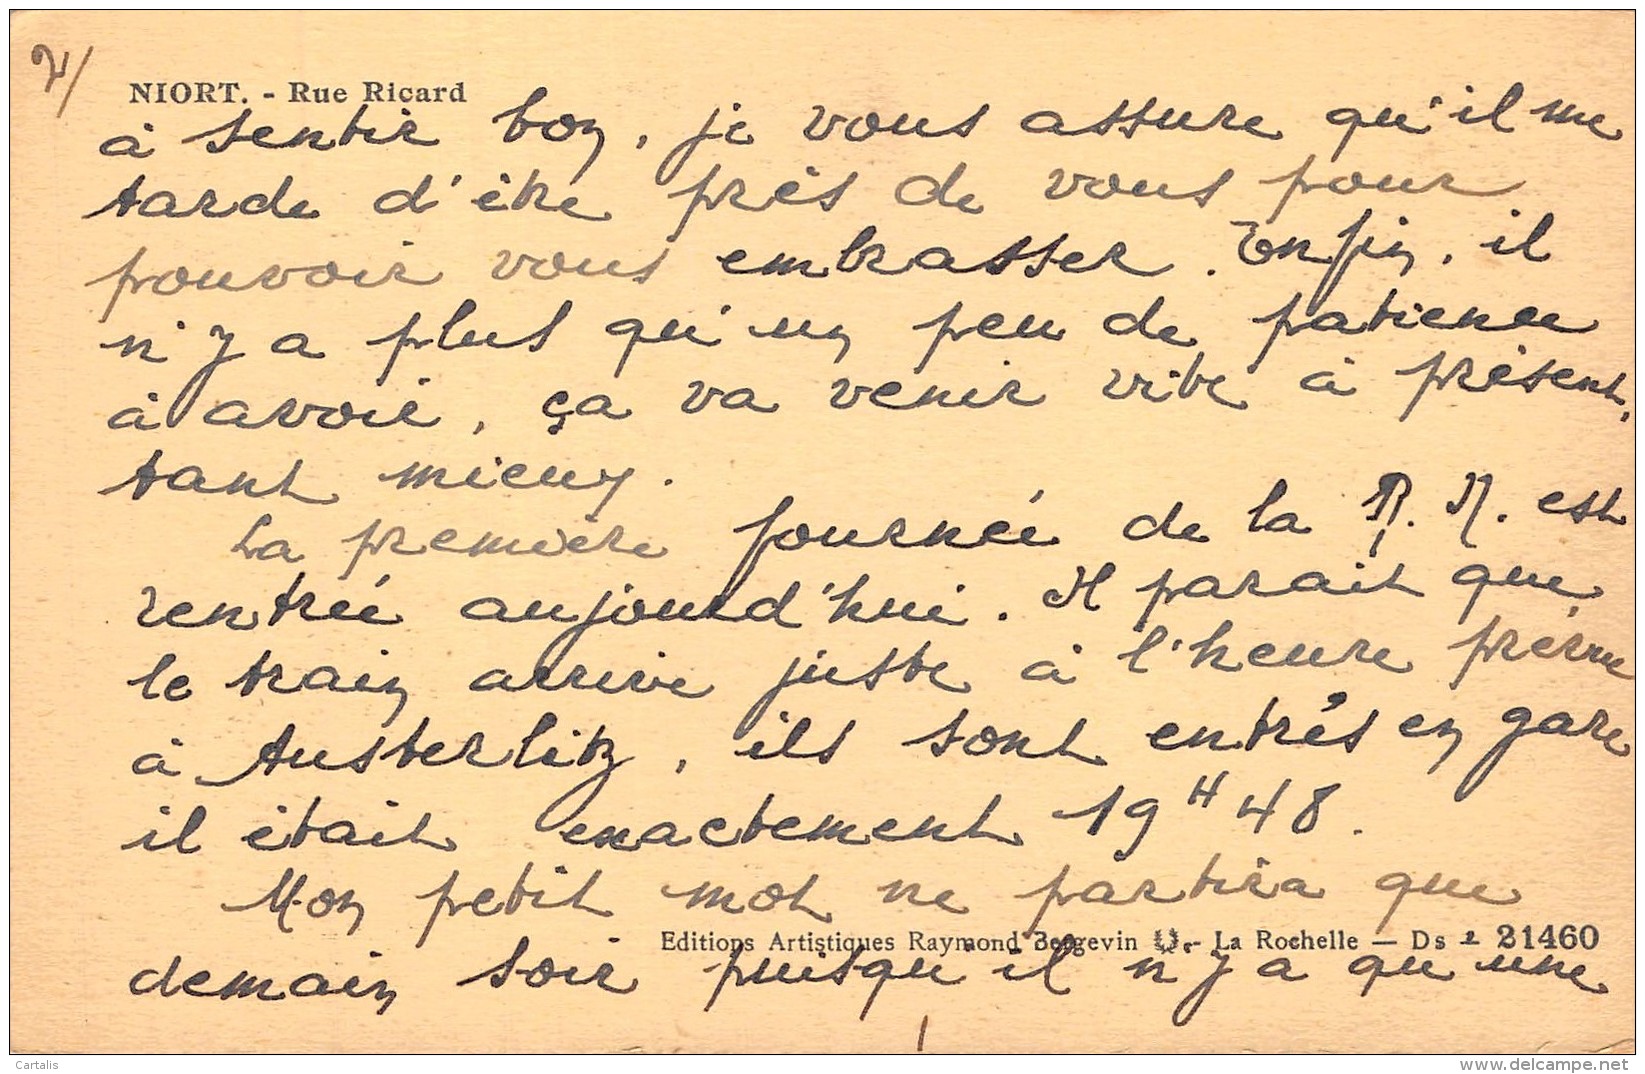 2/
NIORT. - Rue Ricard
à sentir bon, je vous assure qu'il me
tarde d'être près de vous pour
pouvoir vous embrasser. Enfin, il
n'y a plus qu'un peu de patience
à avoir, ça va venir vite à présent,
tant mieux.
La première fournée de la R. N. est
rentrée aujourd'hui. Il parait que
le train arrive juste à l'heure prévue
à Austerlitz, ils sont entrés en gare
il était exactement 19 H 48.
Mon petit mot ne partira que
Editions Artistiques Raymond Bergevin - La Rochelle — Ds 2 21460
demain soir puisqu'il n'y a qu'une
Cartalis
www.delcampe.net